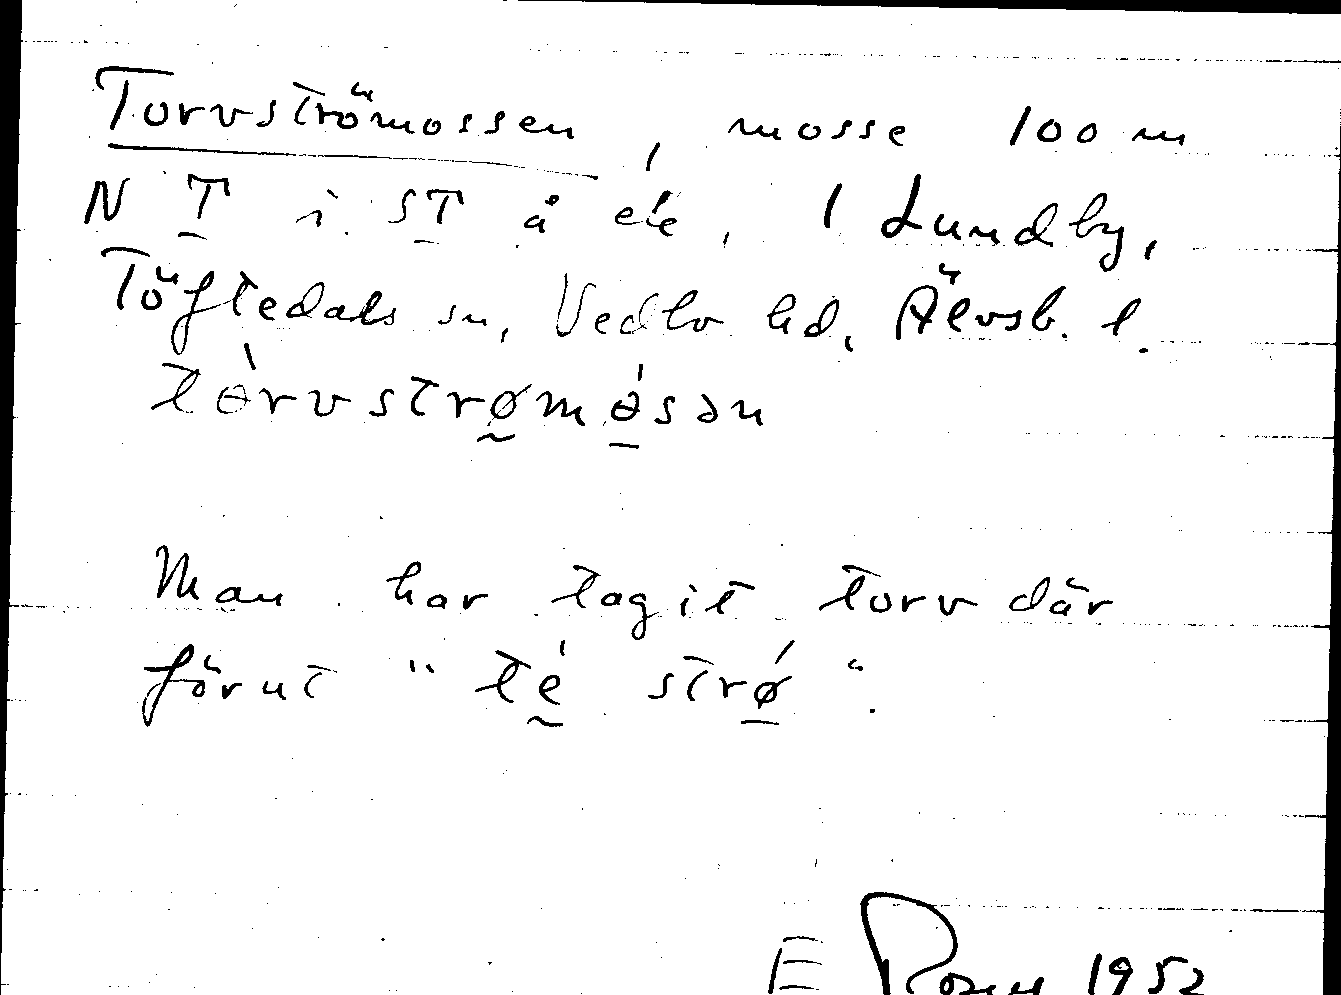 Torvströmossen, mosse 100 m
N T i ST å ek, 1 Lundby,
Töftedals sn, Vedbo hd, Älvsb. l.
tɵ̀rvstrømɵ́sən
Man har tagit torv där
förut "tḛ́ strǿ".
E Rosen 1952